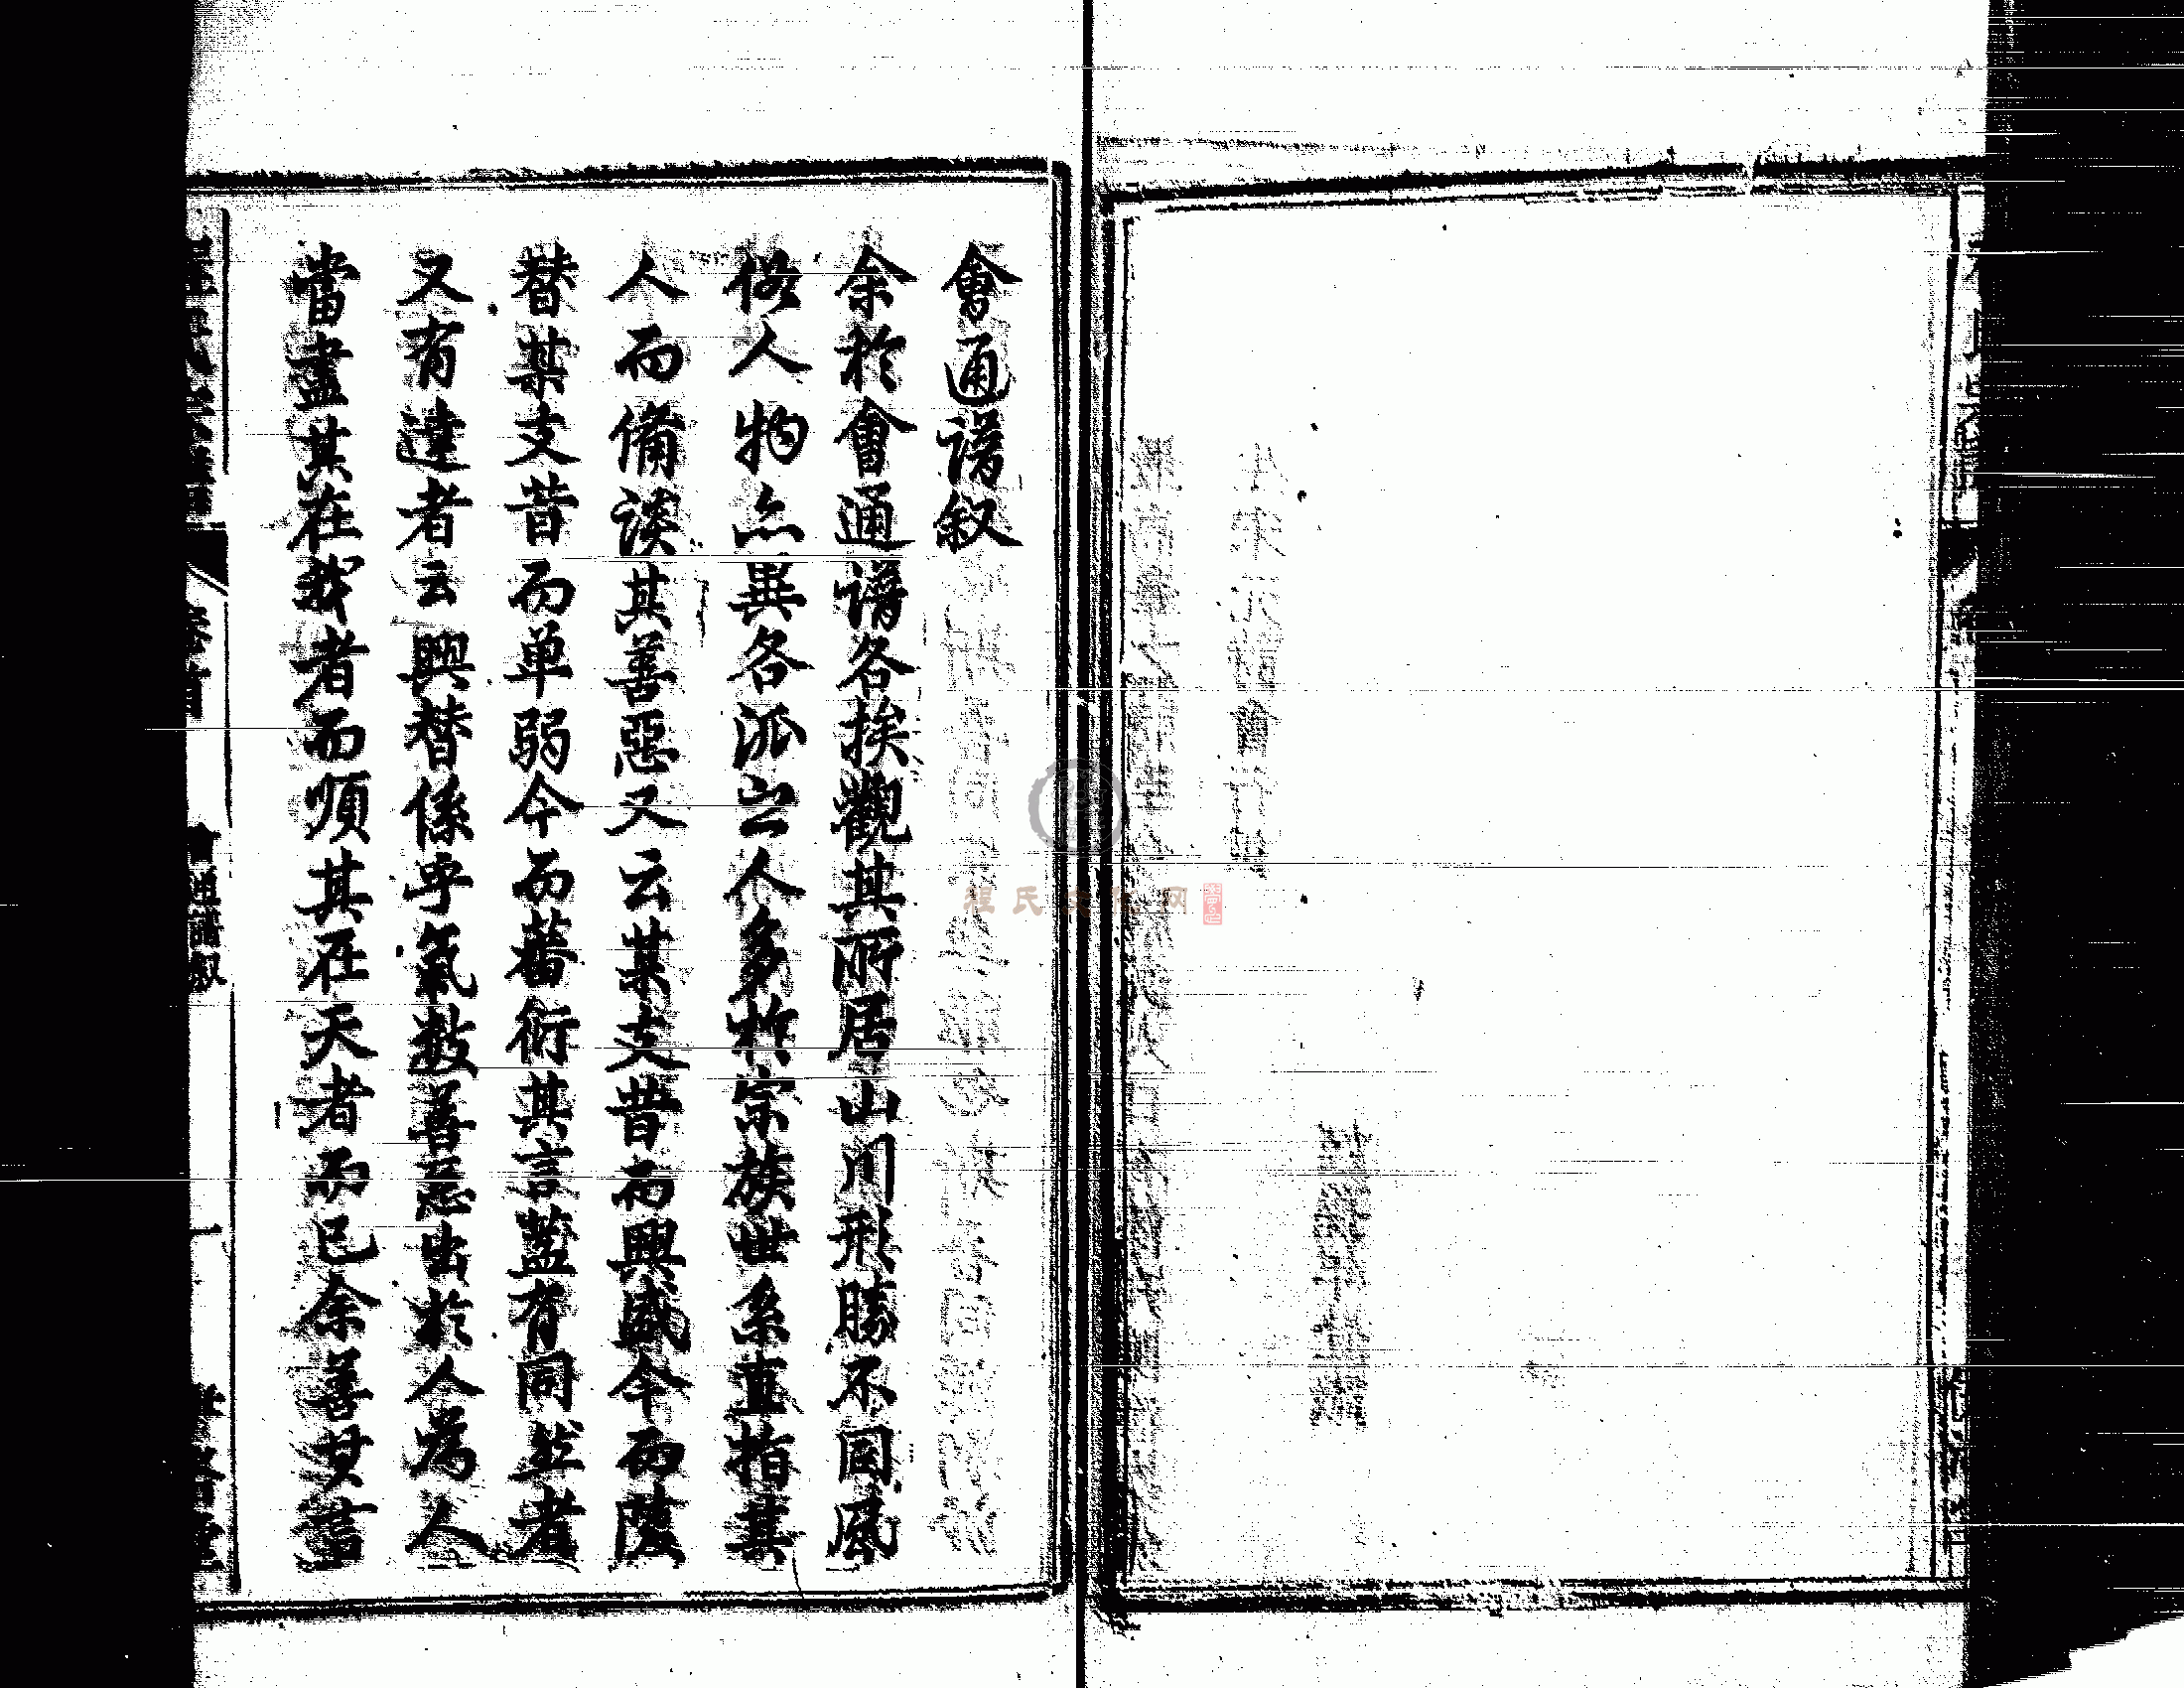 會通譜叙
余於會通譜各挨觀其所居山川形勝不同風
俗人物亦異各派之人多於宗族世系直指其
人而備談其善惡又云某支昔而興盛今而陵
替某支昔而单弱今而蕃衍其言盖有同並者
又有達者云興替係乎氣数善惡出於人為人
當盡其在我者而順其在天者而已余善其言
通譜叙
程氏文化网